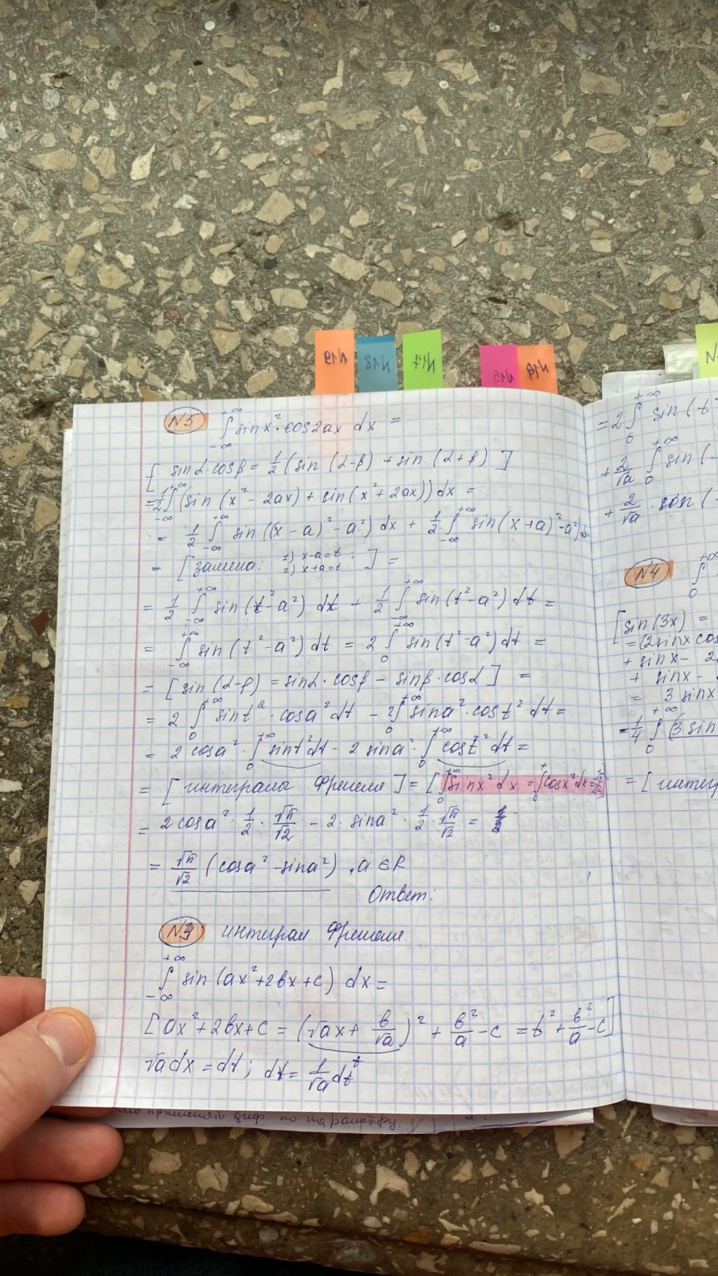 N19 N18 N17 N15 N16
N5 ∫_{-∞}^{+∞} sinx²·cos2ax dx =
[ sinα·cosβ = 1/2 (sin (α-β) + sin (α+β) ]
= 1/2 ∫_{-∞}^{+∞} (sin (x² - 2ax) + sin (x² + 2ax)) dx =
= 1/2 ∫_{-∞}^{+∞} sin ((x - a)² - a²) dx + 1/2 ∫_{-∞}^{+∞} sin (x+a)² - a²) dx =
= [замена: 1) x-a=t ; 2) x+a=t ] =
= 1/2 ∫_{-∞}^{+∞} sin (t² - a²) dt + 1/2 ∫_{-∞}^{+∞} sin (t² - a²) dt =
= ∫_{-∞}^{+∞} sin (t² - a²) dt = 2 ∫_{0}^{+∞} sin (t² - a²) dt =
= [ sin (α-β) = sinα·cosβ - sinβ·cosα ] =
= 2 ∫_{0}^{+∞} sint²·cosa² dt - 2 ∫_{0}^{+∞} sina²·cost² dt =
= 2 cosa²·∫_{0}^{+∞} sint² dt - 2 sina²·∫_{0}^{+∞} cost² dt =
= [интегралы Френеля] = [ ∫_{0}^{+∞} sinx² dx = ∫_{0}^{+∞} cosx² dx =
= 2 cosa²·1/2·√π/√2 - 2·sina²·1/2·√π/√2 =
= √π/√2 (cosa² - sina²), a ∈ R
Ответ:
N3 интеграл Френеля
∫_{-∞}^{+∞} sin (ax² + 2bx + c) dx =
[ ax² + 2bx + c = (√ax + b/√a)² + b²/a - c = t² + b²/a - c ]
√a dx = dt ; dx = 1/√a dt
= 2 ∫_{0}^{+∞} sin (t
+ 2/√a ∫_{0}^{+∞} sin (
+ 2/√a
N4 ∫_{0}^{+∞}
[ sin (3x) =
= (2sinx cos
+ sinx - 2
+ sinx -
= 3 sinx
= 1/4 ∫_{0}^{+∞} (3 sin
= [ интегр
применять диф по параметру.